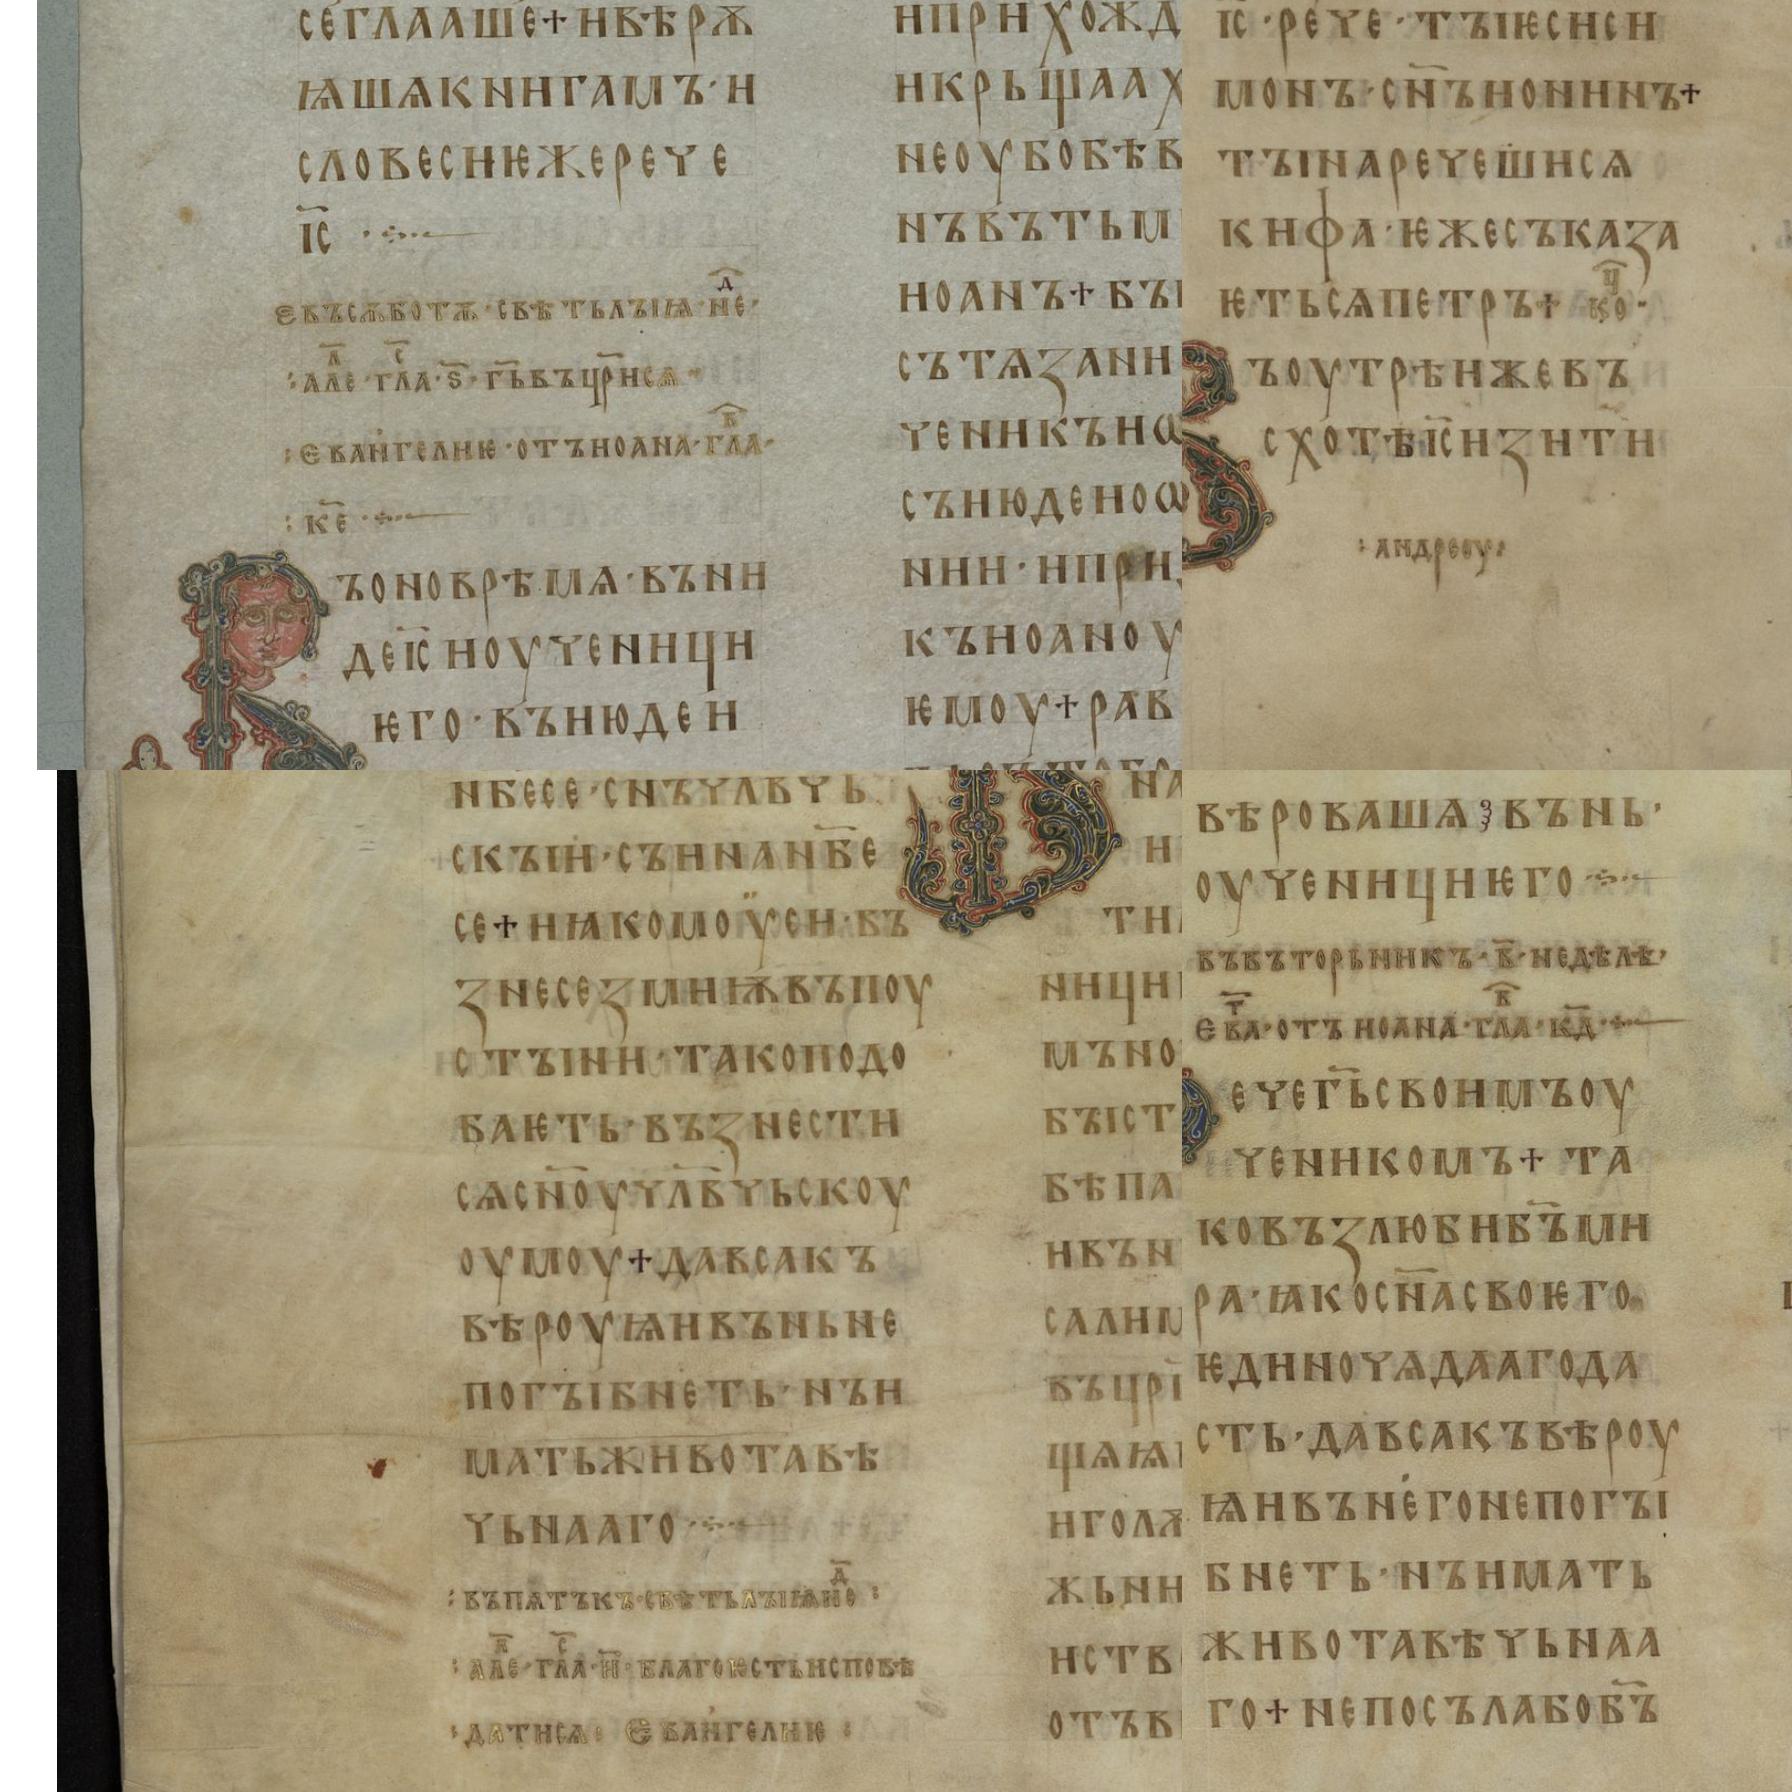 сѥглааше + и вѣрѫ
ꙗша кнꙇгамъ · и
словеси ѥже рече
іс҃ ·
въ сѫботѫ · свѣтьлыѩ · не҃д ·
: але · гла · ѕ҃ · гь҃ въцр҃и сѧ
: еваньгелиѥ · отъ иоана · гла҃в ·
: ке҃ ·
ъ оно врѣмѧ · въни
де іс҃ и оученици
ѥго · въ июдеи
и прихожд
и крьщаах
не оу бо бѣ в
нъ въ тьм
иоанъ + бы
сътѧзани
ченикъ ио
съ июдеѡ
нии · и при
къ иоаноу
ѥмоу + рав
іс҃ · рече · ты ѥси си
монъ · сн҃ъ ионинъ +
ты наречеши сѧ
кифа · ѥже съказа
ѥть сѧ петръ + кѡ҃ц ·
ъ оутрѣи же въ
схотѣ іс҃ изити
: андреоу :
нбесе · сн҃ъ чл҃вчь
скыи · съи на нб҃е
се + и ꙗко моѵси · въ
знесе змиѭ въ поу
стыни · тако подо
баѥть · възнести
сѧ сн҃оу чл҃вчьскоу
оумоу + да всакъ
вѣроуꙗи въ нь не
погыбнеть · нъ и
мать живота вѣ
чьнааго ·
: въ пѧтъкъ · свѣтьлыѩ не҃д :
: але · гла · и҃ · благо ѥсть исповѣ
: дати сѧ : Еваньгелиѥ :
на
н
ти
ници
мъно
быст
бѣ па
и въ н
салим
въ цр҃
щѧꙗ
и голѫ
жьни
и ств
отъ в
вѣроваша въ нь ·
оученици ѥго ·
въ въторьникъ · в҃ · недѣлѣ ·
ева҃ · отъ иоана · гла҃в · кд҃ ·
ече гь҃ своимъ оу
ченикомъ + та
ко възлюби бъ҃ ми
ра · ꙗко сн҃а своѥго
ѥдиночѧдааго да
сть · да всакъ вѣроу
ꙗи въ него не погы
бнеть · нъ имать
живота вѣчьнаа
го + не посъла бо бъ҃